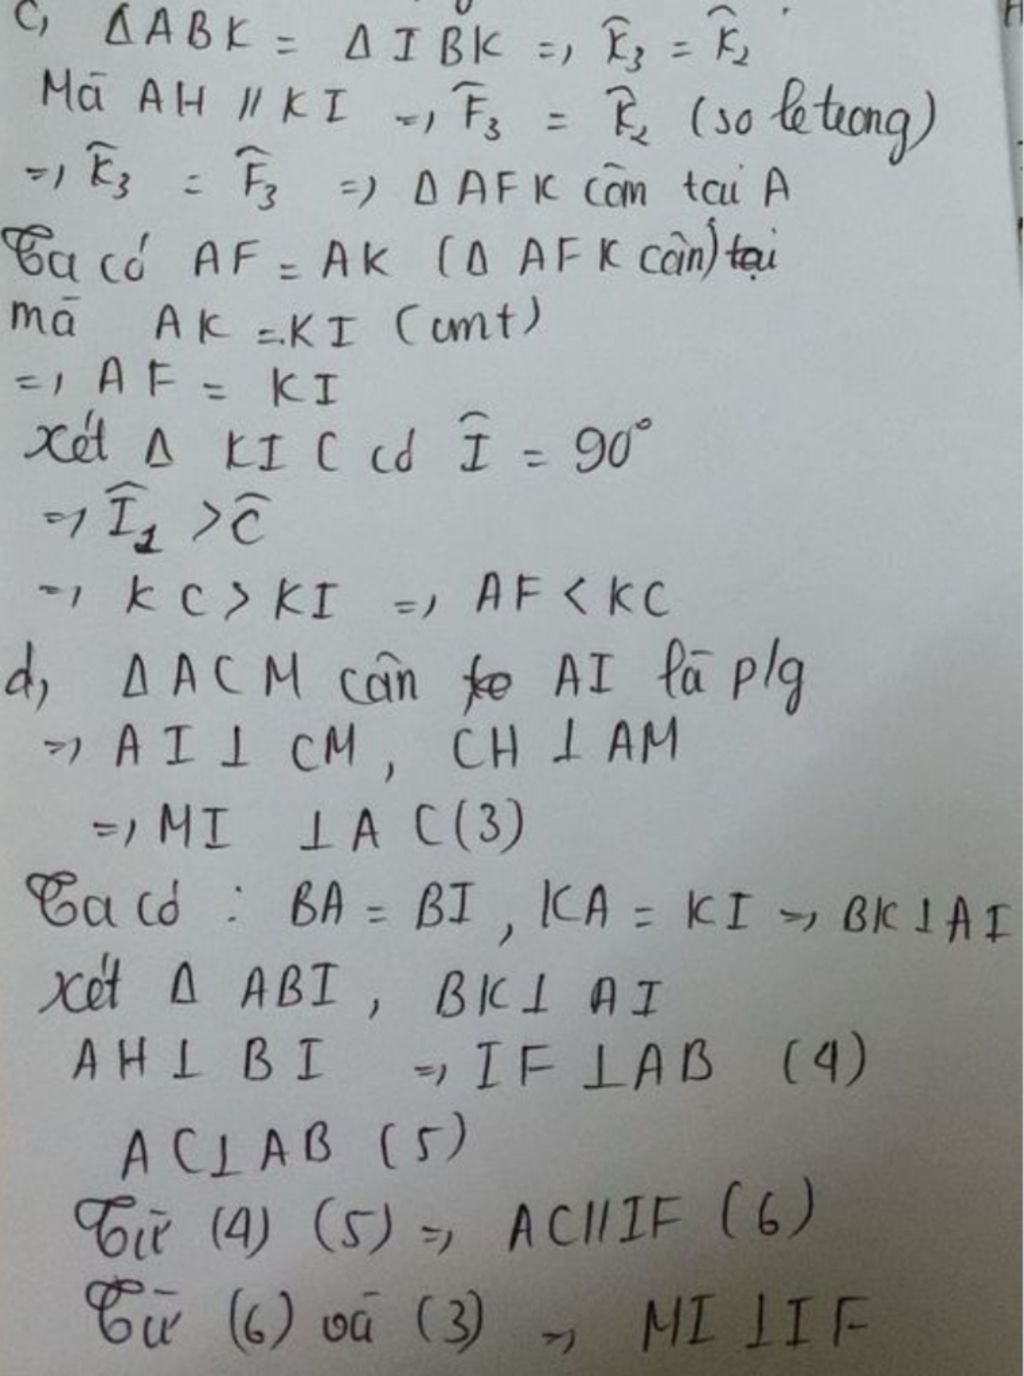 c, ΔABK = ΔIBK => K̂₃ = K̂₂
Mà AH // KI => F̂₃ = K̂₂ (so le trong)
=> K̂₃ = F̂₃ => ΔAFK cân tại A
Ta có AF = AK (ΔAFK cân) tại
mà AK = KI (cmt)
=> AF = KI
xét Δ KIC có Î = 90°
=> Î₁ > Ĉ
=> KC > KI => AF < KC
d, ΔACM cân AI là p/g
=> AI ⊥ CM, CH ⊥ AM
=> MI ⊥ AC (3)
Ta có : BA = BI, KA = KI => BK ⊥ AI
xét Δ ABI, BK ⊥ AI
AH ⊥ BI => IF ⊥ AB (4)
AC ⊥ AB (5)
Từ (4) (5) => AC // IF (6)
Từ (6) và (3) => MI ⊥ IF